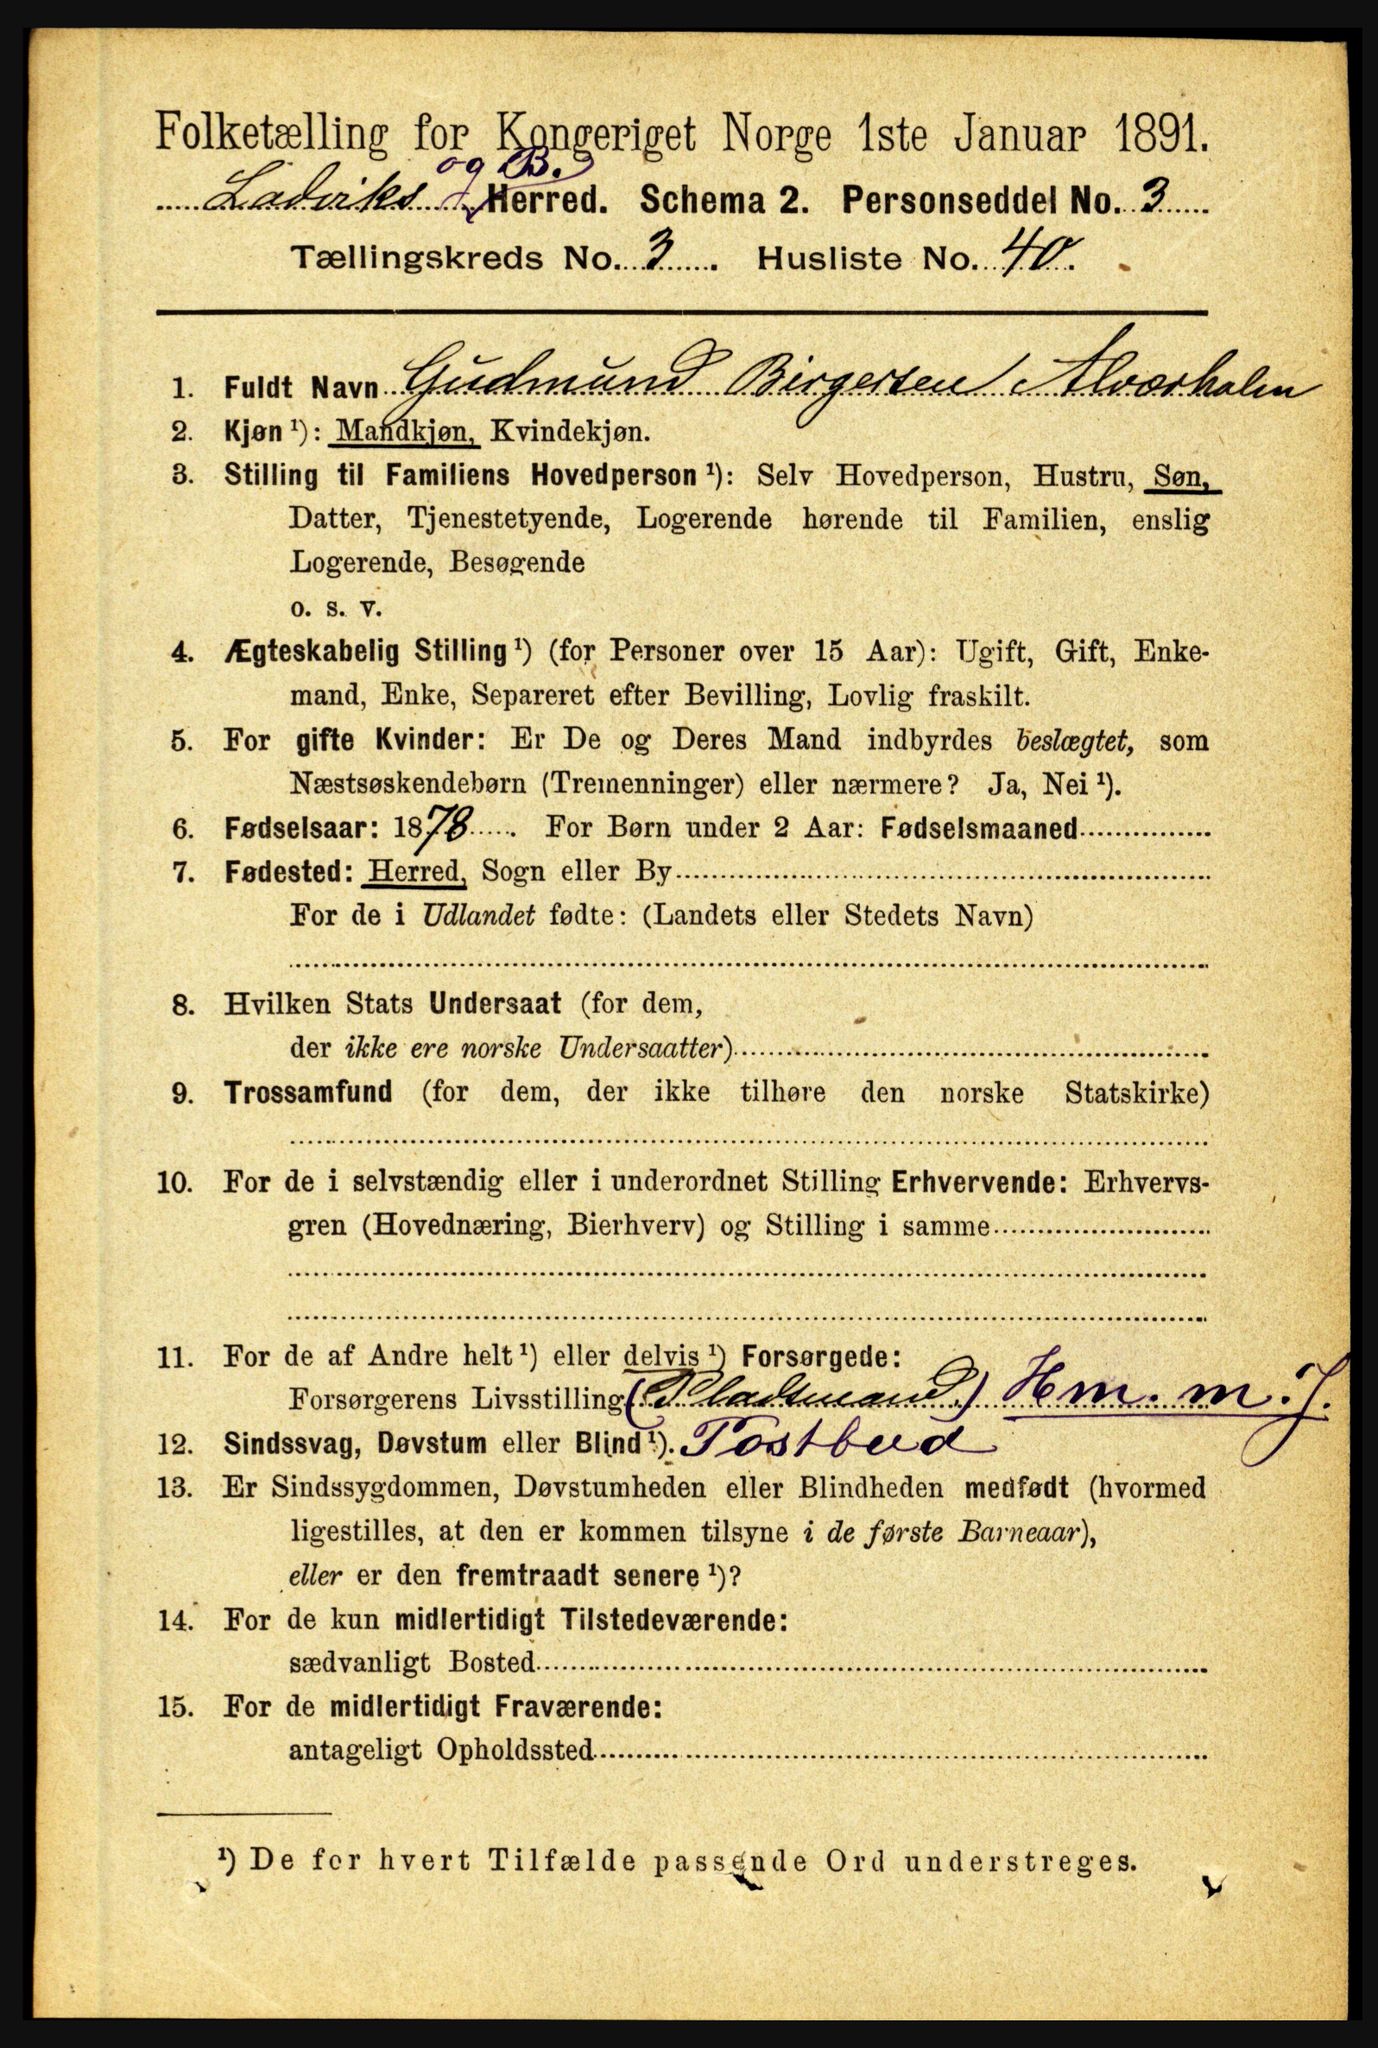 Folketælling for Kongeriget Norge 1ste Januar 1891.
og B.
Ladviks Herred. Schema 2. Personseddel No. 3
Tællingskreds No. 3. Husliste No. 40.
1. Fuldt Navn Gudmund Birgersen Alværholm
2. Kjøn ¹): Mandkjøn, Kvindekjøn.
3. Stilling til Familiens Hovedperson ¹): Selv Hovedperson, Hustru, Søn,
Datter, Tjenestetyende, Logerende hørende til Familien, enslig
Logerende, Besøgende
o. s. v.
4. Ægteskabelig Stilling ¹) (for Personer over 15 Aar): Ugift, Gift, Enke-
mand, Enke, Separeret efter Bevilling, Lovlig fraskilt.
5. For gifte Kvinder: Er De og Deres Mand indbyrdes beslægtet, som
Næstsøskendebørn (Tremenninger) eller nærmere? Ja, Nei ¹).
6. Fødselsaar: 1878. For Børn under 2 Aar: Fødselsmaaned
7. Fødested: Herred, Sogn eller By
For de i Udlandet fødte: (Landets eller Stedets Navn)
8. Hvilken Stats Undersaat (for dem,
der ikke ere norske Undersaatter)
9. Trossamfund (for dem, der ikke tilhøre den norske Statskirke)
10. For de i selvstændig eller i underordnet Stilling Erhvervende: Erhvervs-
gren (Hovednæring, Bierhverv) og Stilling i samme
11. For de af Andre helt ¹) eller delvis ¹) Forsørgede:
Forsørgerens Livsstilling (Pladsmand.) Hm. m. J.
12. Sindssvag, Døvstum eller Blind ¹). Postbud
13. Er Sindssygdommen, Døvstumheden eller Blindheden medfødt (hvormed
ligestilles, at den er kommen tilsyne i de første Barneaar),
eller er den fremtraadt senere ¹)?
14. For de kun midlertidigt Tilstedeværende:
sædvanligt Bosted
15. For de midlertidigt Fraværende:
antageligt Opholdssted
¹) De for hvert Tilfælde passende Ord understreges.